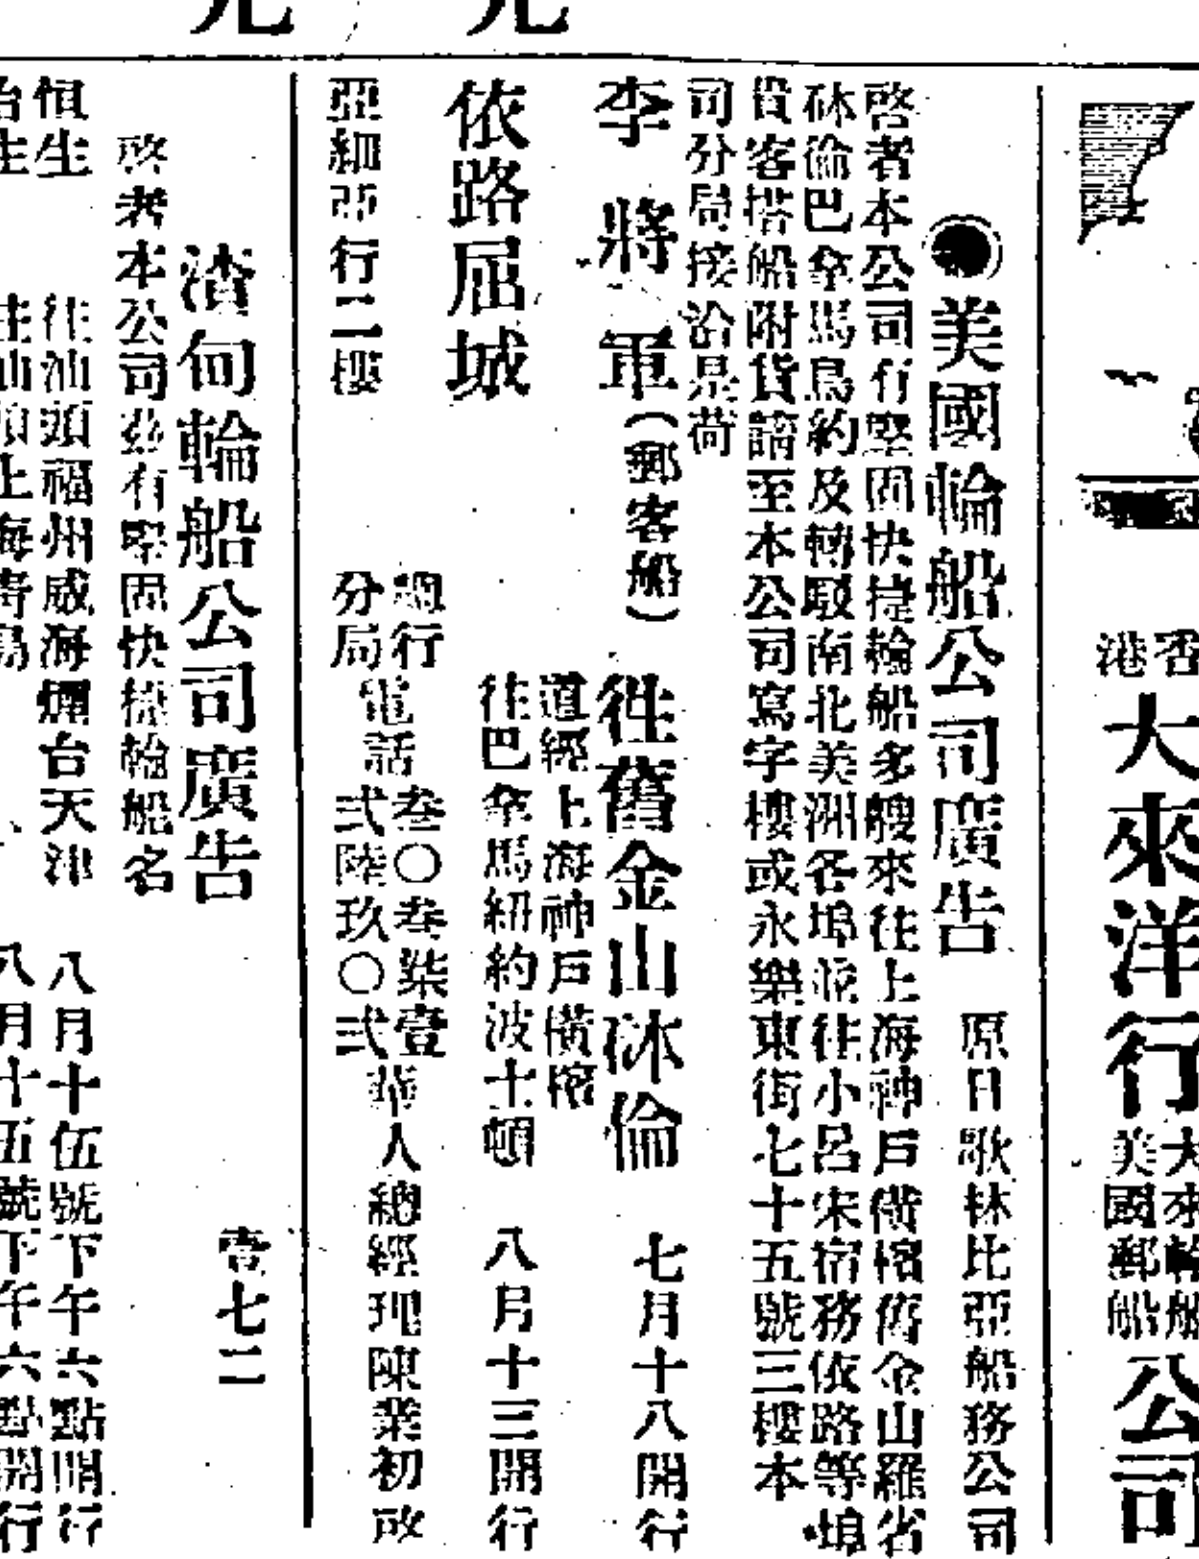 香港
大來洋行
大來輪船
美國郵船
公司
美國輪船公司廣告 原日歌林比亞船務公司
啓者本公司有堅固快捷輪船多艘來往上海神戶橫檳舊金山羅省
砅倫巴拿馬鳥約及轉駁南北美洲各埠並往小呂宋宿務依路等埠
貴客搭船附貨請至本公司寫字樓或永樂東街七十五號三樓本
司分局接洽是荷
李將軍(郵客船) 往舊金山砅倫 七月十八開行
道經上海神戶橫檳
依路屈城 往巴拿馬紐約波士頓 八月十三開行
總行
分局
電話
叁〇叁柒壹
弍陸玖〇弍
華人總經理陳業初啟
亞細亞行二樓
渣甸輪船公司廣告 壹七二
啓者本公司並有堅固快捷輪船名
恒生 往油頭福州威海烟台天津 八月十伍號下午六點開行
怡生 往油頭上海青島 八月十五號下午六點開行